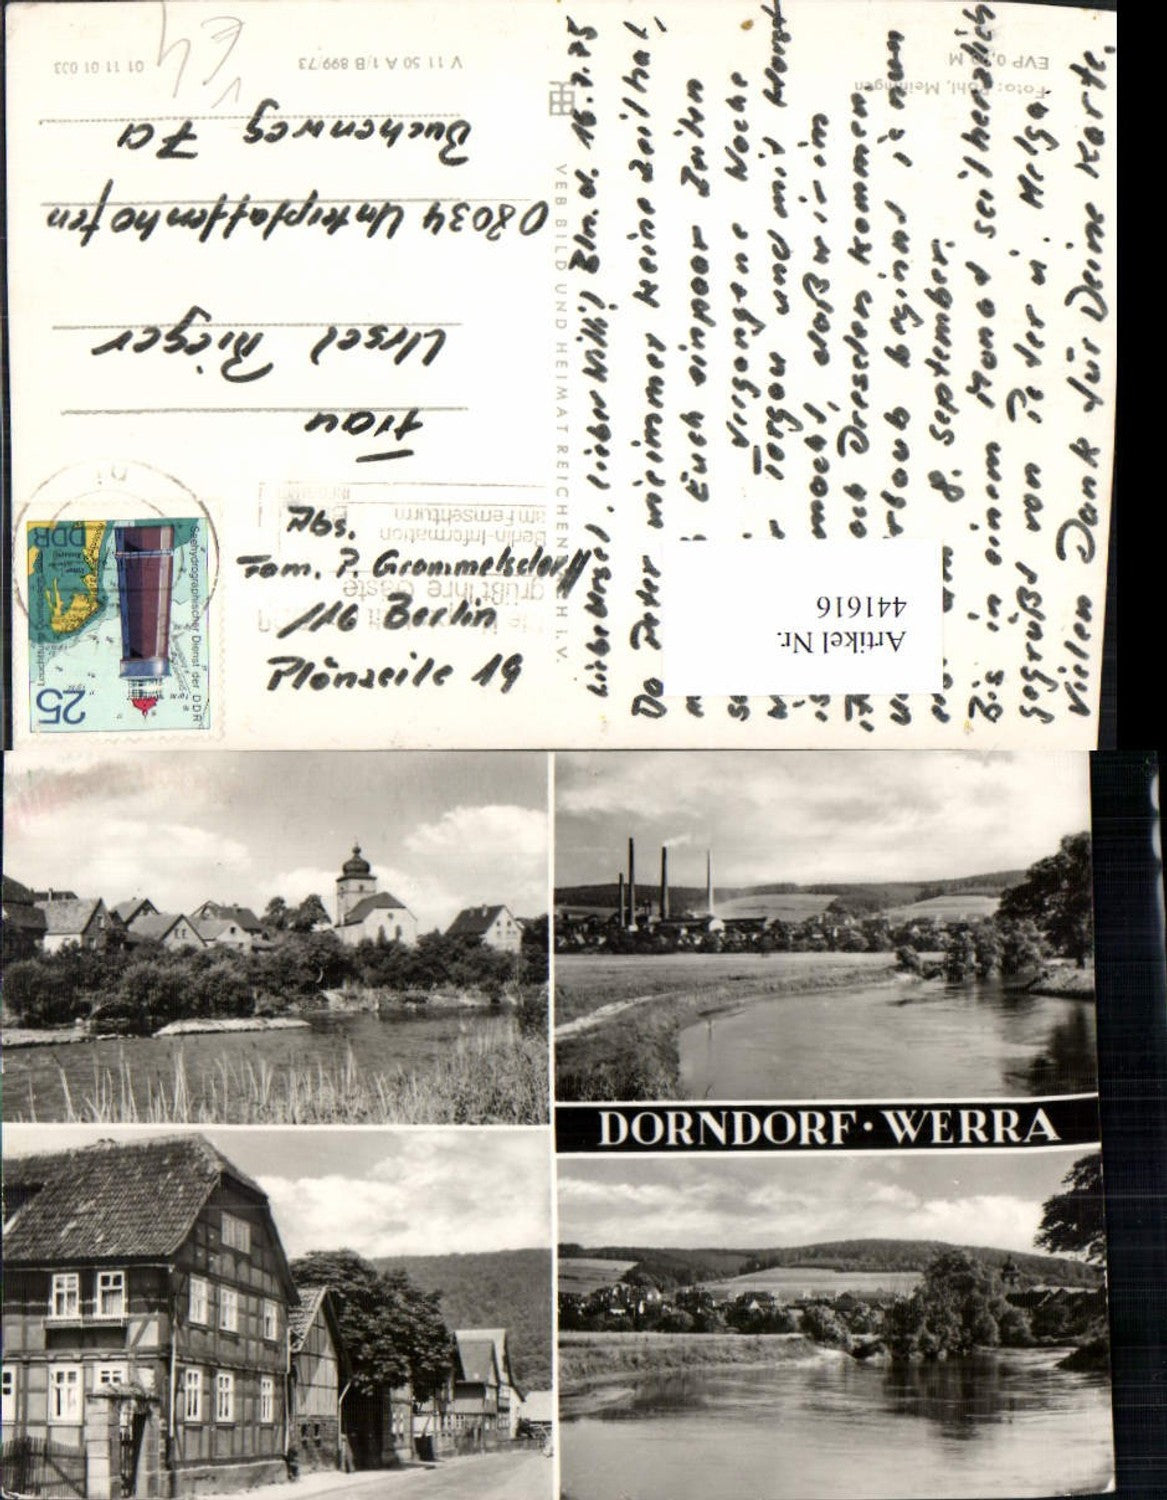 Liebe Ursel, lieber Willi! Bln. d. 16.7.75
Da Peter wie immer keine Zeit hat,
Euch ein paar Zeilen
Vergangene Woche
Torgau und mit Horst
daß wir im
nach Dresden kommen.
Urlaub beginnt
8. September.
Bis in einem Monat sei herzlich
gegrüßt von Peter u. Helga
Vielen Dank für Deine Karte.
EVP 0,20 M
Foto: Pohl, Meiningen
VEB BILD UND HEIMAT REICHENBACH i. V.
V 11 50 A 1/B 899/73
01 11 01 033
Frau
Ursel Rieger
D 8034 Unterpfaffenhofen
Buchenweg 7a
Berlin-Information
am Fernsehturm
grüßt ihre Gäste
25
DDR
Seehydrographischer Dienst der DDR
Abs.
Fam. P. Grammelsdorff
116 Berlin
Plönzeile 19
Artikel Nr.
441616
DORNDORF · WERRA